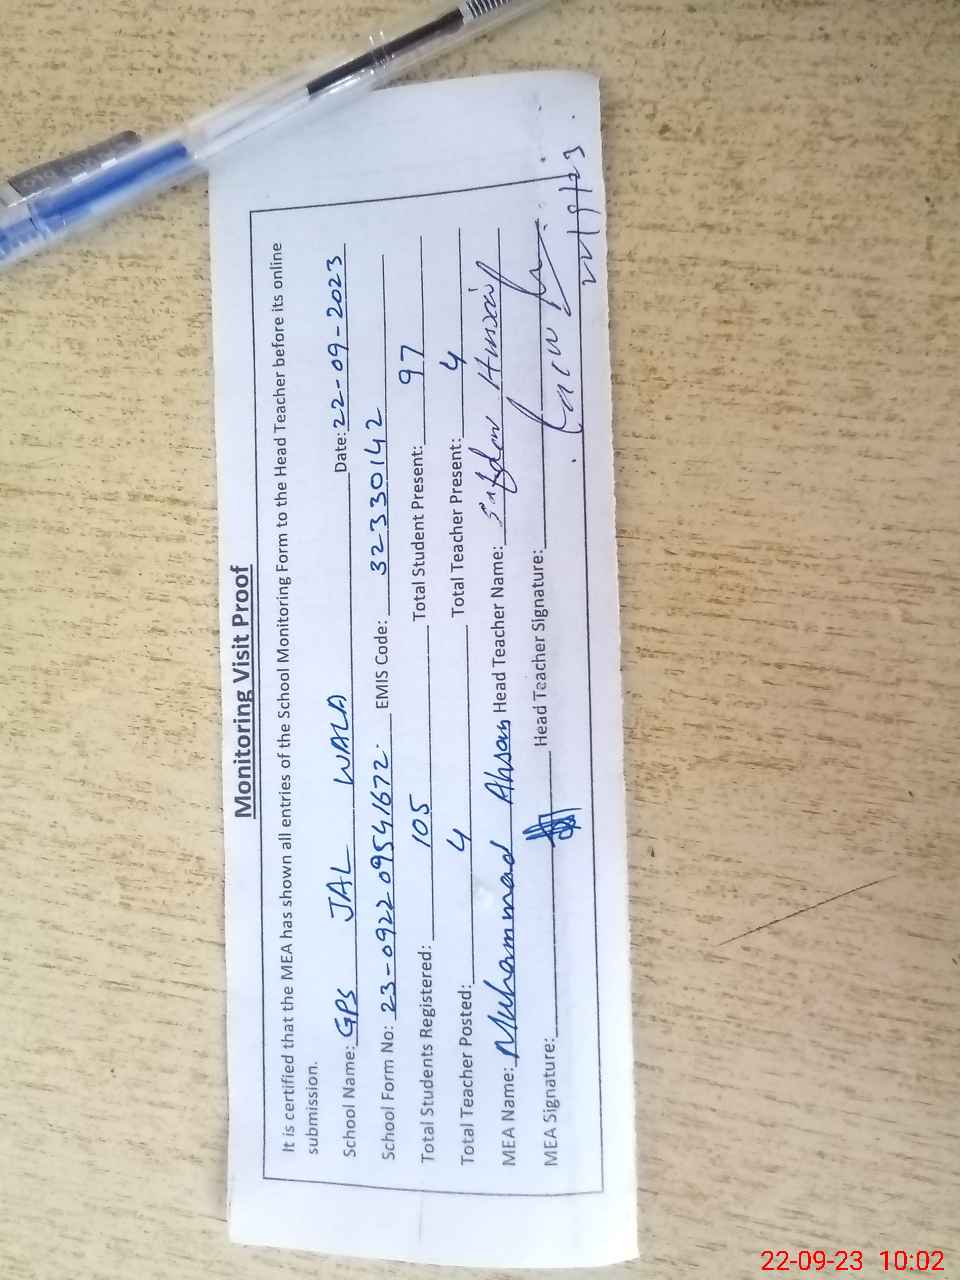 Monitoring Visit Proof
It is certified that the MEA has shown all entries of the School Monitoring Form to the Head Teacher before its online
submission.
School Name: GPS JAL WALA Date: 22-09-2023
School Form No: 23-0922 09541672. EMIS Code: 32330142
Total Students Registered: 105 Total Student Present: 97
Total Teacher Posted: 4 Total Teacher Present: 4
MEA Name: Muhammad Ahsan Head Teacher Name:
MEA Signature: Head Teacher Signature:
22-09-23 10:02